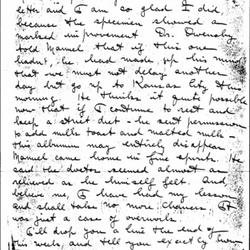 letter and I am so glad I did,
because the specimen showed a
marked improvement Dr. Owensby
told Mamel that if this one
hadn't, he had made up his mind
that we must not delay another
day but go up to Kansas City this
morning. He thinks it quite possible
now that if I continue to rest and
keep a strict diet - he sent permission
to add milk toast and malted milk -
this albumen may entirely disappear
Mamel came home in fine spirits. He
said the doctor seemed almost as
relieved as he himself felt. And
believe me, I have had my lesson
and shall take no more chances. It
was just a case of overwork.
I'll drop you a line the first of
this week, and tell you exactly how